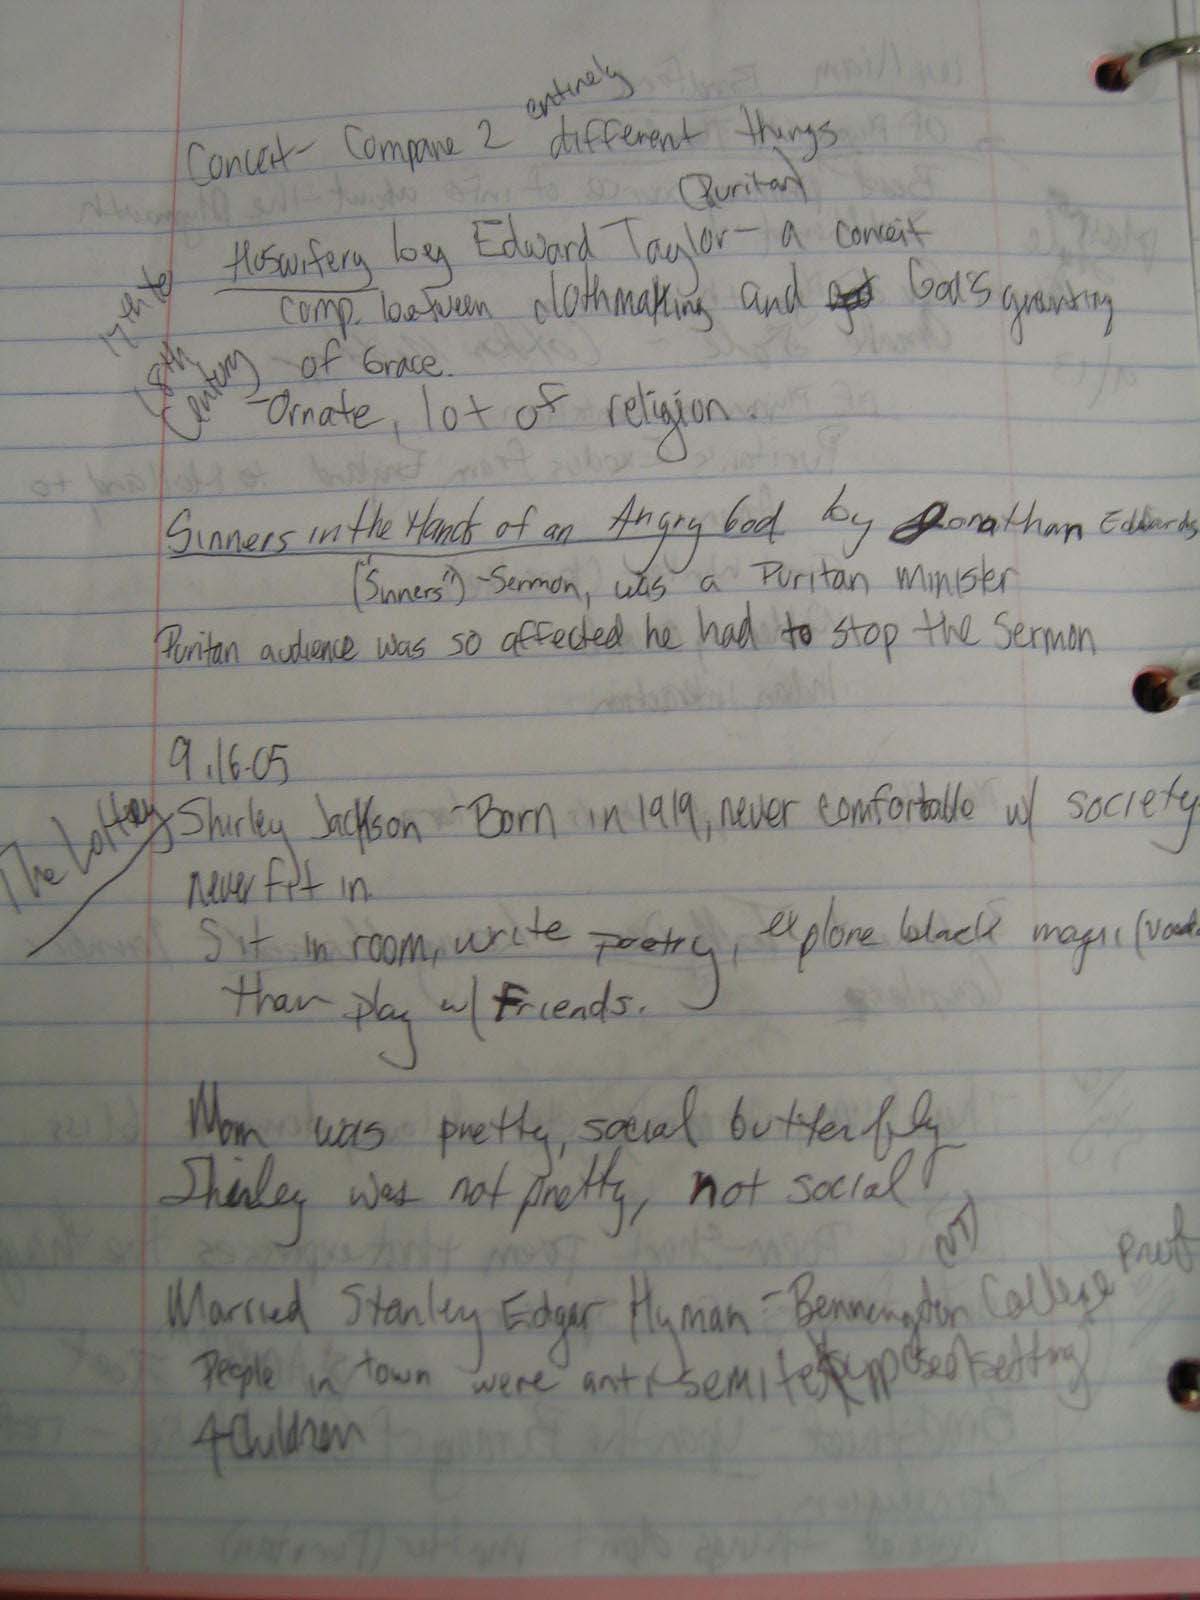 entirely
Conceit- Compare 2 different things
(Puritan)
Huswifery by Edward Taylor- a conceit
17th to
18th
Century
comp. between clothmaking and God's granting
of Grace.
-Ornate, lot of religion.
Sinners in the Hands of an Angry God by Jonathan Edwards
("Sinners") -Sermon, was a Puritan minister
Puritan audience was so affected he had to stop the sermon
9.16.05
The Lottery
Shirley Jackson -Born in 1919, never comfortable w/ society
never fit in.
Sit in room, write poetry, explore black magic
than play w/ Friends.
Mom was pretty, social butterfly
Shirley was not pretty, not social
(VT)
Married Stanley Edgar Hyman -Bennington College Prof
People in town were anti-semites (supposed setting)
4 Children